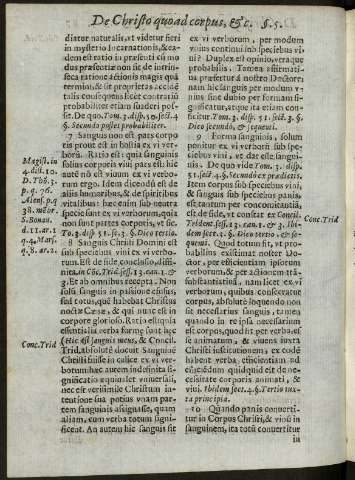 De Christo quoad corpus, &c. §. 5.
diatur naturalis, ut videtur fieri
in mysterio Incarnationis, & ea-
dem est ratio in præsenti cũ mo-
dus præsentiæ non sit de intrin-
seca ratione actionis magis quã
termini, & sic proprietas acciden-
talis consequens licet contrariũ
probabiliter etiam suaderi pos-
sit. De quo. Tom. 3. disp. 50. sect. 4
§. Secundo potest probabiliter.
7 Sanguis non est pars corpo-
ris prout est in hostia ex vi ver-
borũ. Ratio est: quia sanguis
solius corporis viui pars est: hic
autẽ nõ est viuum ex vi verbo-
rum ergo. Idem dicendũ est de
aliis humoribus, & de spiritibus
vitalibus: hæc enim sub neutra
specie sunt ex vi verborum, quia
non sunt partes corporis, vt sic.
To. 3. disp. 51. sect. 3. §. Dico tertio.
8 Sanguis Christi Domini est
sub speciebus vini ex vi verbo-
rum. Est de fide, sic enim absolutè, diffi-
nita. in Cõc. Trid. sess. 13. can. 1. &
3. Et ab omnibus recepta. Non
solũ sanguis in passione effusus,
sed totus, quẽ habebat Christus
nocte Cænæ, & qui nunc est in
corpore glorioso. Ratio est: quia
essentialia verba formę sunt hęc
(Hic est sanguis meus, & Concil.
Trid. absolutè docuit Sanguinẽ
Christi fuisse in calice ex vi ver-
borum: hæc autem indefinita si-
gnificatio æquiualet vniuersali,
nec est verisimile Christum in-
tentione sua potius vnam par-
tem sanguinis assignasse, quam
aliam, cum verba totum signi-
ficent. An autem hic sanguis sit
ex vi verborum, per modum
vnius continui sub speciebus vi-
ni? Duplex est opinio, veraque
probabilis. Tamen affirmati-
ua præfertur à nostro Doctore:
nam hic sanguis per modum v-
nius sine dubio per formam si-
gnificatur, atque ita etiam con-
ficitur. Tom. 3. disp. 51. sect. 3. §.
Dico secundo, & sequenti.
9 Forma sanguinis, solum
ponitur ex vi verborum sub spe-
ciebus vini, vt dat esse sangui-
nis. De quo vide Tom. 3. disp.
51. sect. 4. §. Secundo ex prædictis.
Item corpus sub speciebus vini,
& sanguis sub speciebus panis
est per concomitantiam, est quia
est de fide, vt constat ex Concil.
Trident. sess. 13. can. 1. & 3. Ibi-
dem sect. 4. §. Dico tertio, & se-
quenti. Quod totum sit, vt pro-
babilius existimat noster Do-
ctor, per efficientiam ipsorum
verborum, & per actionem trã-
substantiatiuã, nam licet ex vi
verborum, quibus consecratur
corpus, absolutè loquendo non
sit necessarius sanguis, tamen
quando in re ipsa necessarium
est corpus, quod fit per verba es-
se animatum, & viuens iuxta
Christi institutionem, ex eodẽ
habent verba efficientiam ad
efficiendũ quicquid est de ne-
cessitate corporis animati, &
viui. Ibidem sect. 4. §. Tertio iux-
ta principia.
10 Quando panis conuerti-
tur in Corpus Christi, & vinũ in
sanguinem, ita totũ conuertitur
in
Magist. in
4. dist. 10.
D. Tho. 3.
p. q. 76.
Alens. p. 4
S. Bonau.
d. 11. ar. 1
q. 4. Mars.
q. 8. ar. 2.
Conc. Trid
Conc. Trid